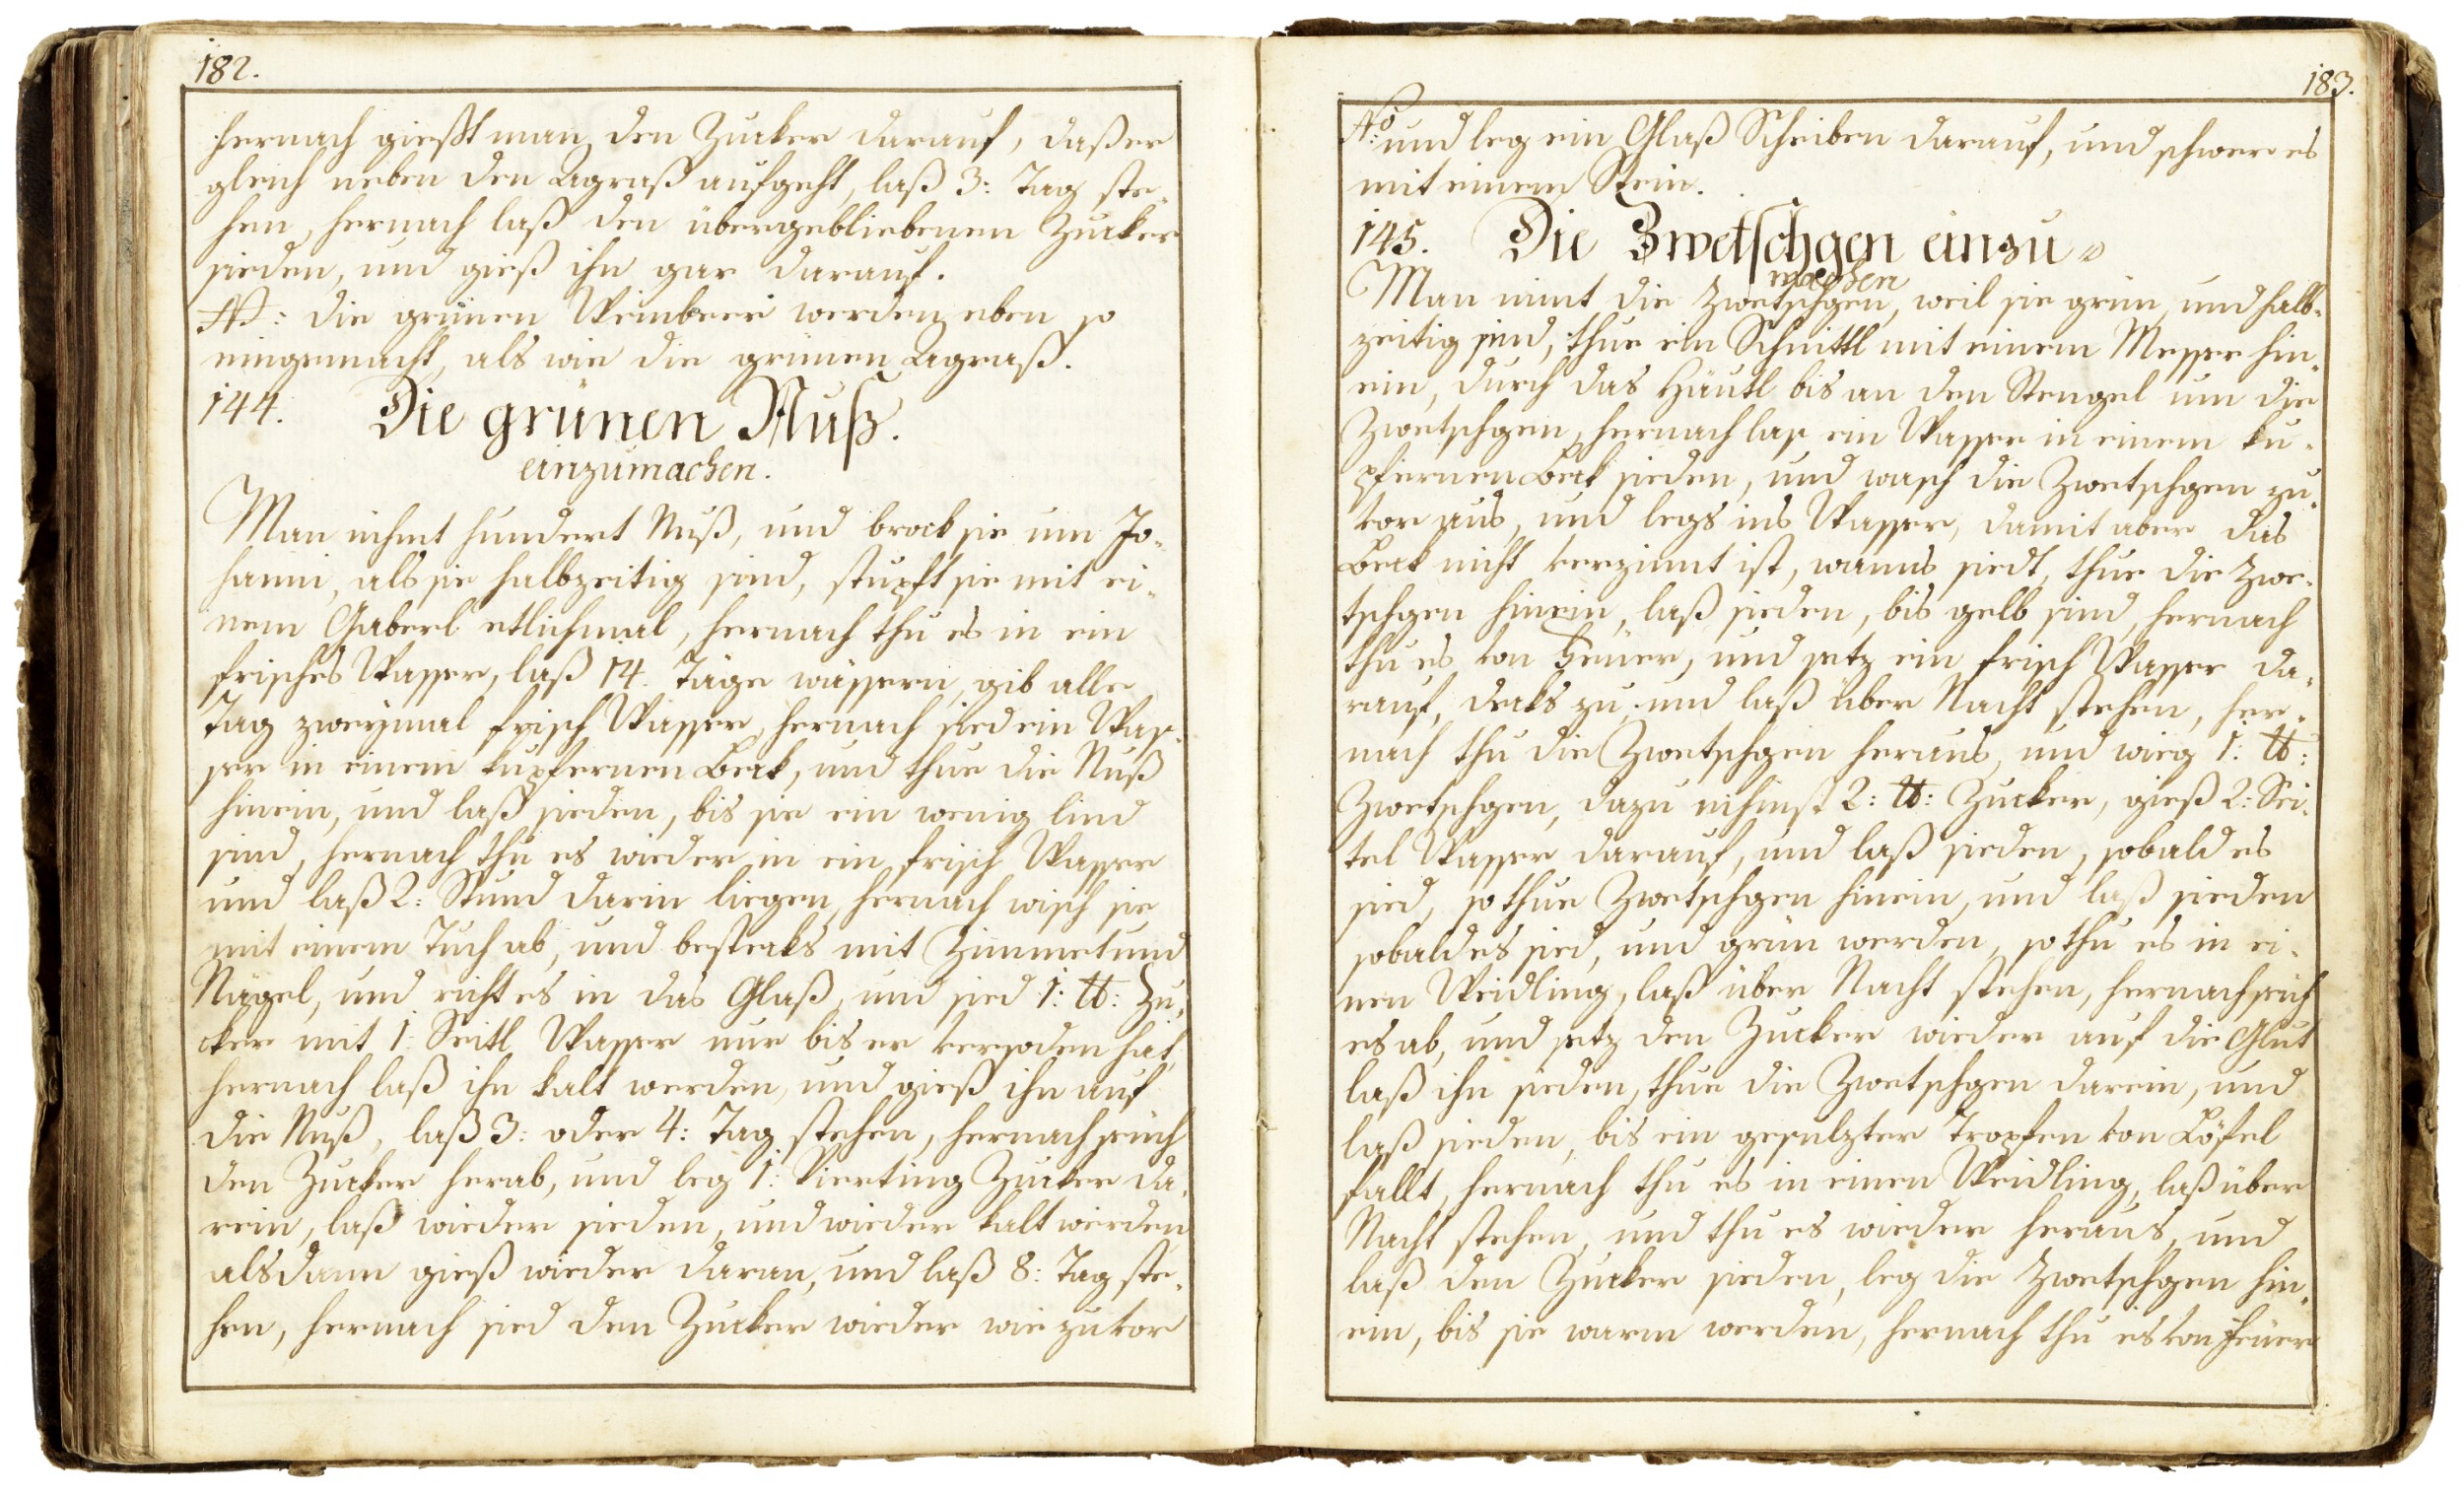 182.
hernach gießt man den Zucker darauf, daß er
gleich neben den Agraß aufgeht, laß 3: Tag ste-
hen, hernach laß den übergebliebenen Zucker
sieden, und gieß ihn gar darauf.
NB: die grünen Weinbeer werden eben so
eingemacht, als wie die grünen Agraß.
144. Die grünen Nuß.
einzumachen.
Man nihmt hundert Nuß, und brock sie um Jo-
hanni, als sie halbzeitig sind, stupft sie mit ei-
nem Gaberl etlichmal, hernach thu es in ein
frisches Wasser, laß 14. Täge wässern, gib alle
Tag zweymal frisch Wasser, hernach sied ein Was-
ser in einem kupfernen Beck, und thue die Nuß
hinein, und laß sieden, bis sie ein wenig lind
sind, hernach thu es wieder in ein frisch Wasser
und laß 2: Stund darin liegen, hernach wisch sie
mit einem Tuch ab, und bestecks mit Zimmet und
Nägel, und richt es in das Glaß, und sied 1: ℔: Zu-
cker mit 1: Seitl Wasser nur bis er versoden hat,
hernach laß ihn kalt werden, und gieß ihn auf
die Nuß, laß 3: oder 4: Tag stehen, hernach seich
den Zucker herab, und leg 1: Vierting Zucker da-
rein, laß wieder sieden, und wieder kalt werden
alsdann gieß wieder daran, und laß 8: Tag ste-
hen, hernach sied den Zucker wieder wie zuvor
183.
No: und leg ein Glaß Scheiben darauf, und schwer es
mit einem Stein.
145. Die Zwetschgen einzu-
machen
Man nimt die Zwetschgen, weil sie grün, und halb-
zeitig sind, thue ein Schnittl mit einem Messer hin-
ein, durch das Häutl bis an den Stengel um die
Zwetschgen, hernach lass ein Wasser in einem ku-
pfernen Beck sieden, und wasch die Zwetschgen zu-
vor aus, und legs ins Wasser, damit aber das
Beck nicht verzinnt ist, wanns siedt, thue die Zwe-
tschgen hinein, laß sieden, bis gelb sind, hernach
thu es von Feüer, und setz ein frisch Wasser da-
rauf, decks zu, und laß über Nacht stehen, her-
nach thu die Zwetschgen heraus, und wieg 1: ℔:
Zwetschgen, dazu nihmst 2: ℔: Zucker, gieß 2: Sei-
tel Wasser darauf, und laß sieden, sobald es
sied, so thue Zwetschgen hinein, und laß sieden
sobald es sied, und grün werden, so thu es in ei-
nen Weidling, laß über Nacht stehen, hernach seich
es ab, und setz den Zucker wieder auf die Glut
laß ihn sieden, thue die Zwetschgen darein, und
laß sieden, bis ein gesulzter Tropfen von Löfel
fallt, hernach thu es in einen Weidling, laß über
Nacht stehen, und thu es wieder heraus, und
laß den Zucker sieden, leg die Zwetschgen hin-
ein, bis sie warm werden, hernach thu es von Feüer